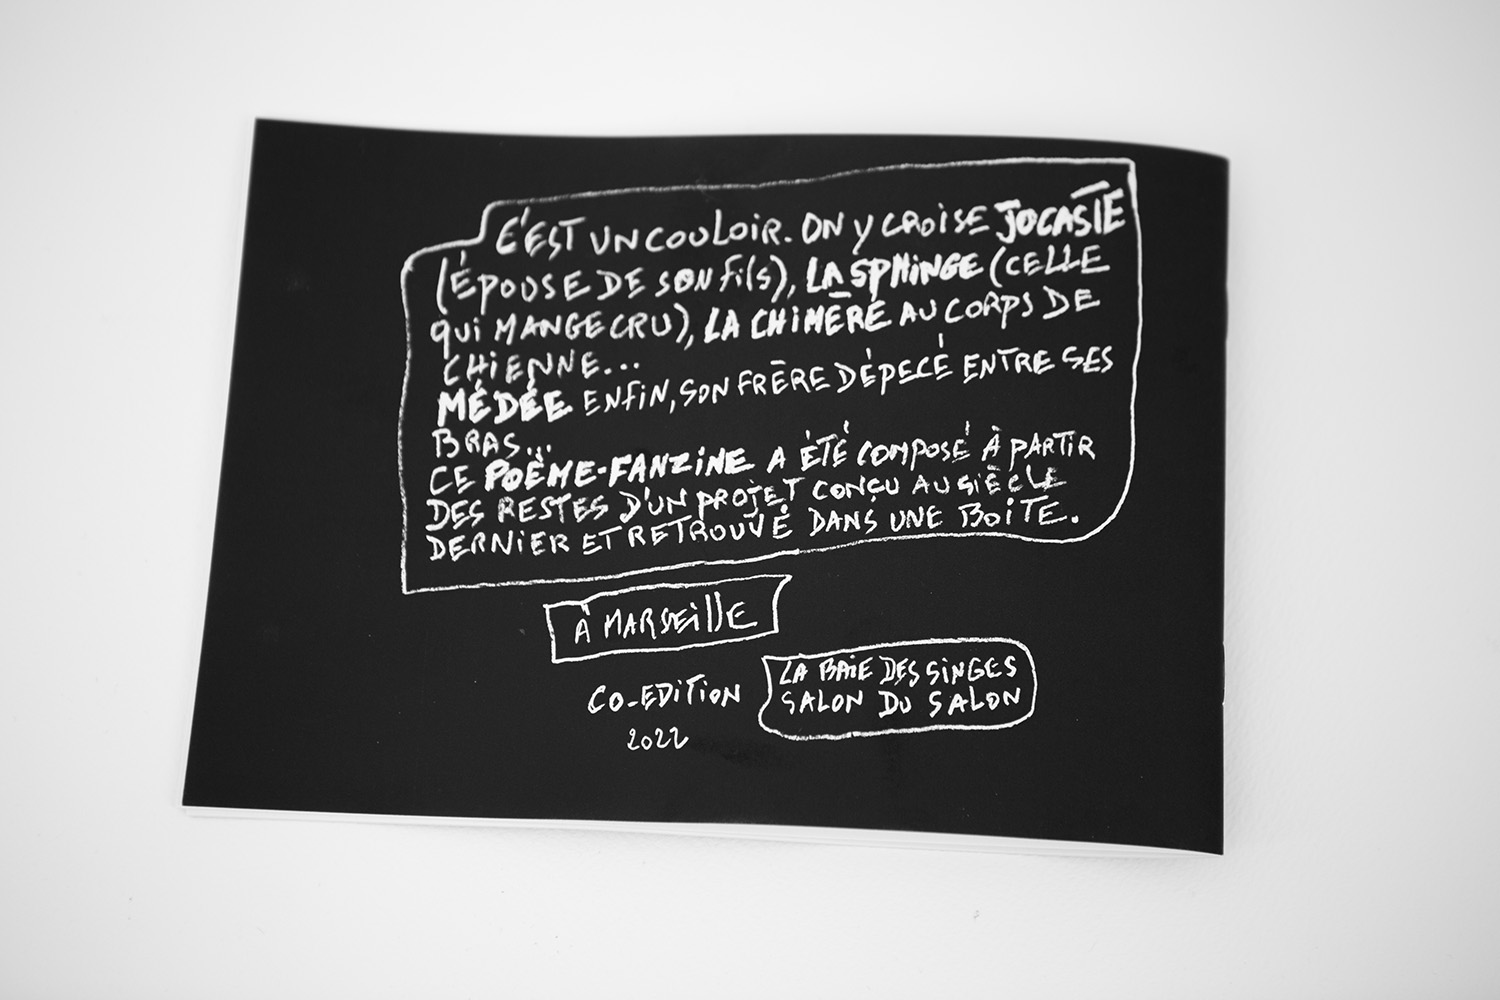 C'EST UN COULOIR. ON Y CROISE JOCASTE
(ÉPOUSE DE SON fils), LA SPHiNGE (CELLE
qui MANGE CRU), LA CHiMÈRE AU CORPS DE
CHiENNE...
MÉDÉE ENFiN, SON FRÈRE DÉPECÉ ENTRE SES
BRAS...
CE POÈME-FANZiNE A ÉTÉ COMPOSÉ À PARTiR
DES RESTES D'UN PROJET CONÇU AU SIÈCLE
DERNiER ET RETROUVÉ DANS UNE BOiTE.
À MARSEiLLE
CO-EDiTiON
LA BAiE DES SiNGES
SALON DU SALON
2022